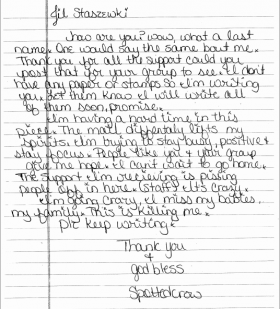 Jil Staszewski
How are you? wow, what a last
name. One would say the same bout me.
Thank you for all the support could you
post that for your group to see. I don't
have any paper or stamps so I'm writing
you. Let them know I will write all
of them soon, promise.
I'm having a hard time in this
place. The mail differently lifts my
spirits. I'm trying to stay busy, positive &
stay focus. People like you & your group
give me hope. I can't wait to go home.
The support I'm recieving is pissing
people off in here. (Staff) It's crazy.
I'm going crazy, I miss my babies,
my family. This is killing me.
Plz keep writing.
Thank you
&
god bless
Spottedcrow